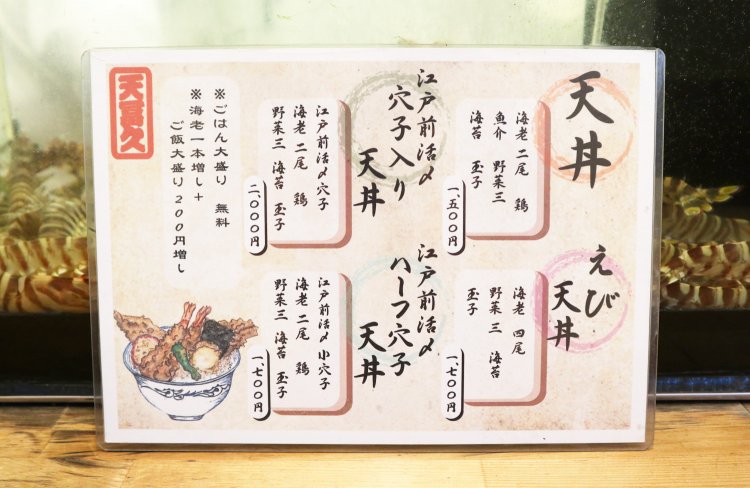 天丼
海老 二尾 鶏
魚介 野菜三
海苔 玉子
一、五〇〇円
えび
天丼
海老 四尾
野菜三 海苔
玉子
一、七〇〇円
江戸前活〆
穴子入り
天丼
江戸前活〆穴子
海老 二尾 鶏
野菜三 海苔 玉子
二、〇〇〇円
江戸前活〆
ハーフ穴子
天丼
江戸前活〆小穴子
海老 二尾 鶏
野菜三 海苔 玉子
一、七〇〇円
※ごはん大盛り 無料
※海老一本増し+
ご飯大盛り200円増し
天喜久